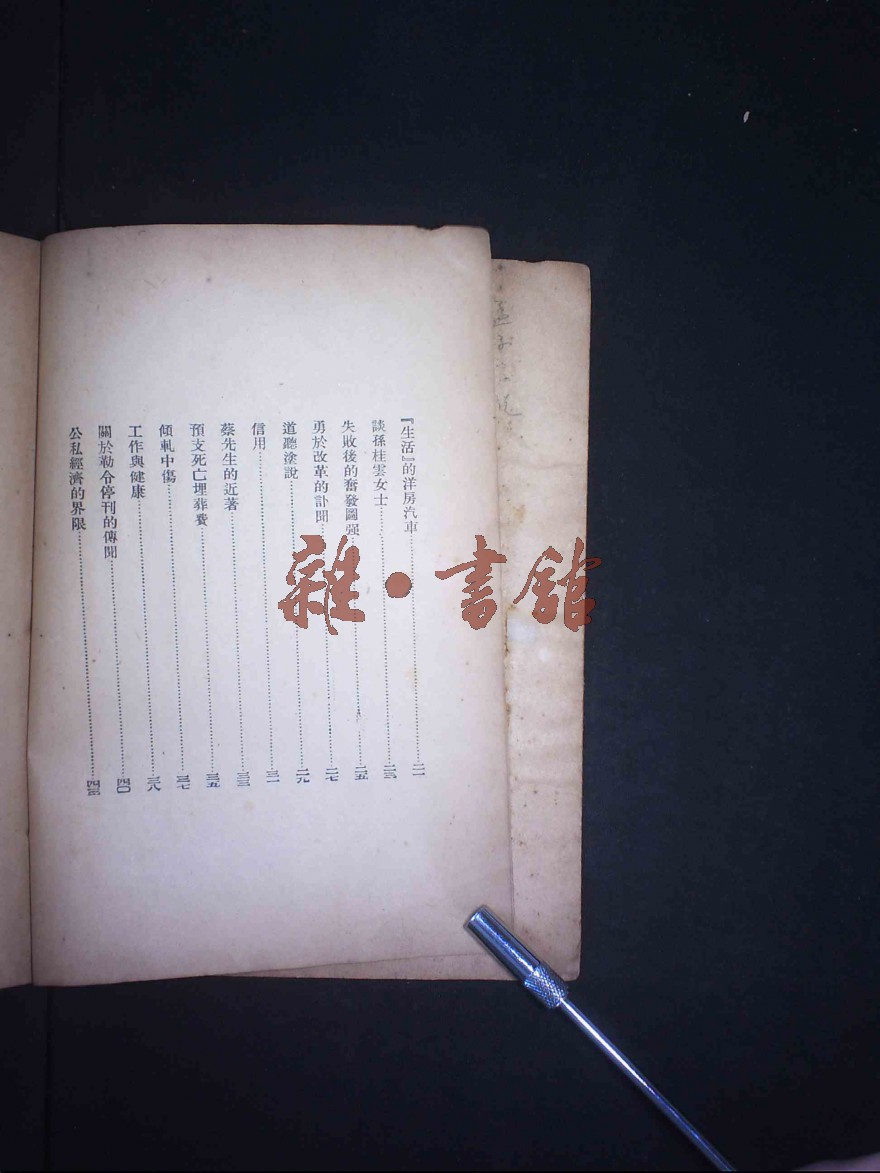 『生活』的洋房汽車……二一
談孫桂雲女士……二三
失敗後的奮發圖强……二五
勇於改革的訃聞……二七
道聽塗說……二九
信用……三一
蔡先生的近著……三三
預支死亡埋葬費……三五
傾軋中傷……三七
工作與健康……三八
關於勒令停刊的傳聞……四〇
公私經濟的界限……四三
雜·書館